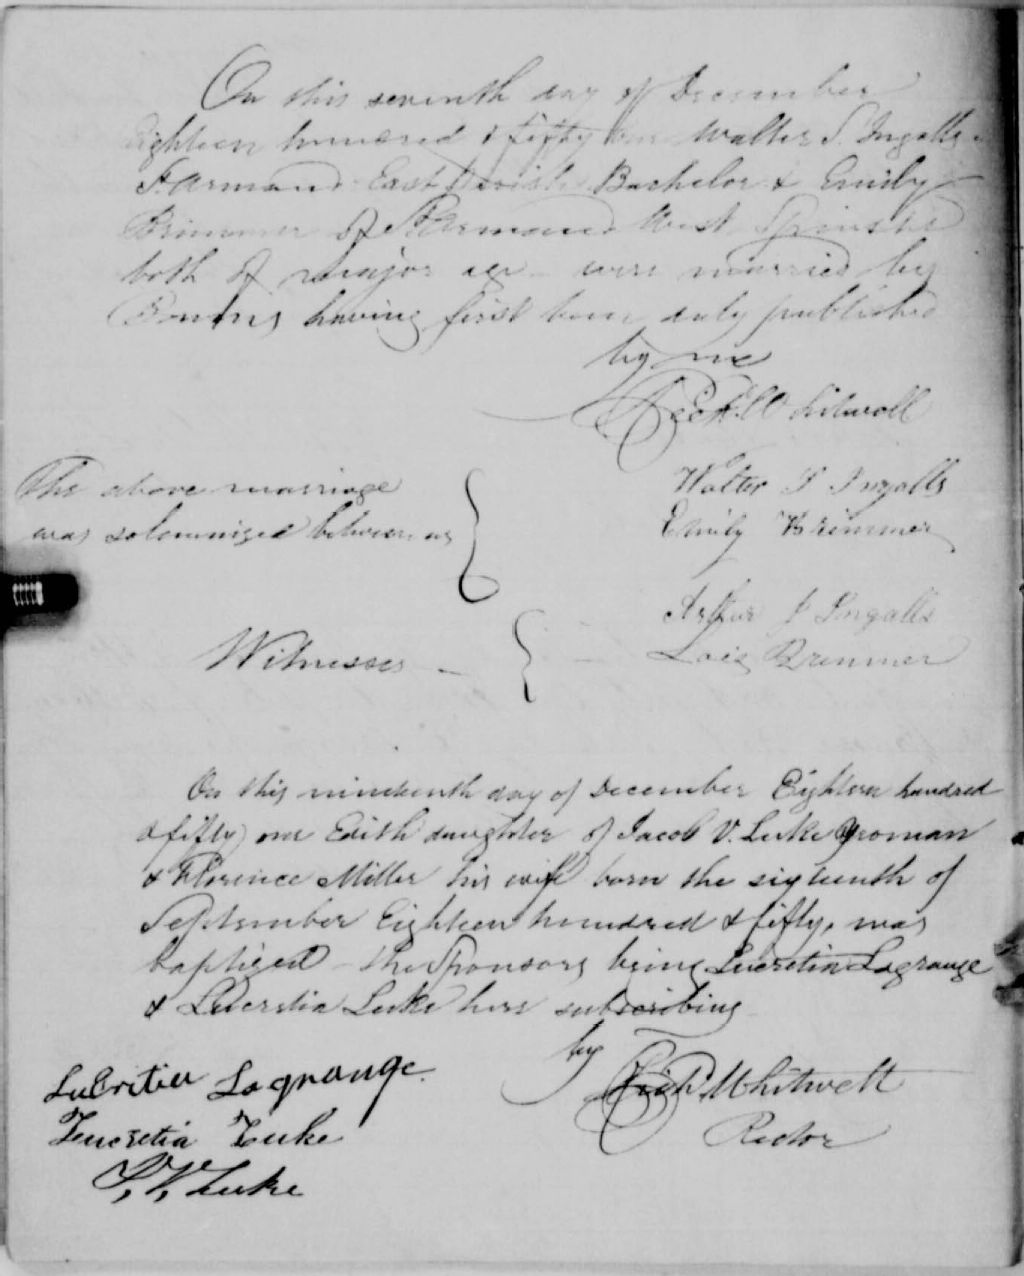 On this seventh day of December
Eighteen hundred & fifty one Walter S. Ingalls
St Armand East Parish Bachelor & Emily
Brimmer of St Armand West Spinster
both of major age were married by
Banns having first been duly published
by me
Whitwell
The above marriage
was solemnized between us
Walter S Ingalls
Emily Brimmer
Witnesses
Arthur J Ingalls
Lois Brimmer
On this nineteenth day of December Eighteen hundred
& fifty one Edith daughter of Jacob V. Luke Yeoman
& Florence Miller his wife born the sixteenth of
September Eighteen hundred & fifty, was
baptized - the Sponsors being Lucretia Lagrange
& Lucretia Luke here subscribing
by
Whitwell
Rector
Lucritia Lagrange
Lucretia Luke
V, Luke